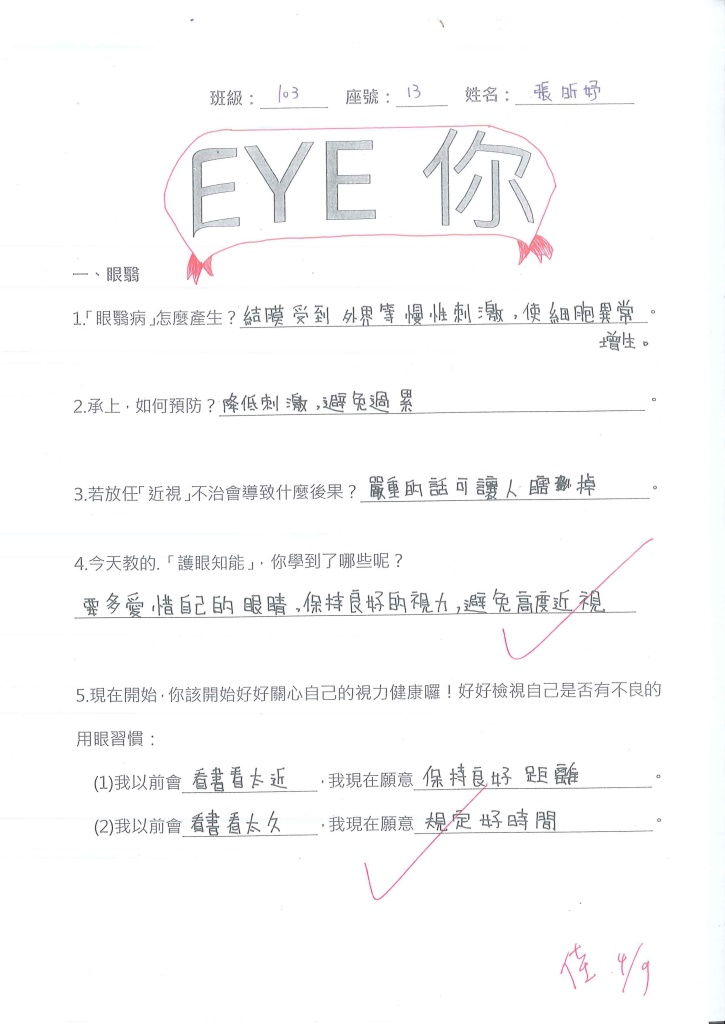 班級：103 座號：13 姓名：張昕妤
EYE 你
一、眼翳
1.「眼翳病」怎麼產生？結膜受到外界等慢性刺激，使細胞異常。
增生。
2.承上，如何預防？降低刺激，避免過累。
3.若放任「近視」不治會導致什麼後果？嚴重的話可讓人瞎掉。
4.今天教的.「護眼知能」，你學到了哪些呢？
要多愛惜自己的眼睛，保持良好的視力，避免高度近視
5.現在開始，你該開始好好關心自己的視力健康囉！好好檢視自己是否有不良的
用眼習慣：
(1)我以前會看書看太近，我現在願意保持良好距離。
(2)我以前會看書看太久，我現在願意規定好時間。
佳 4/9